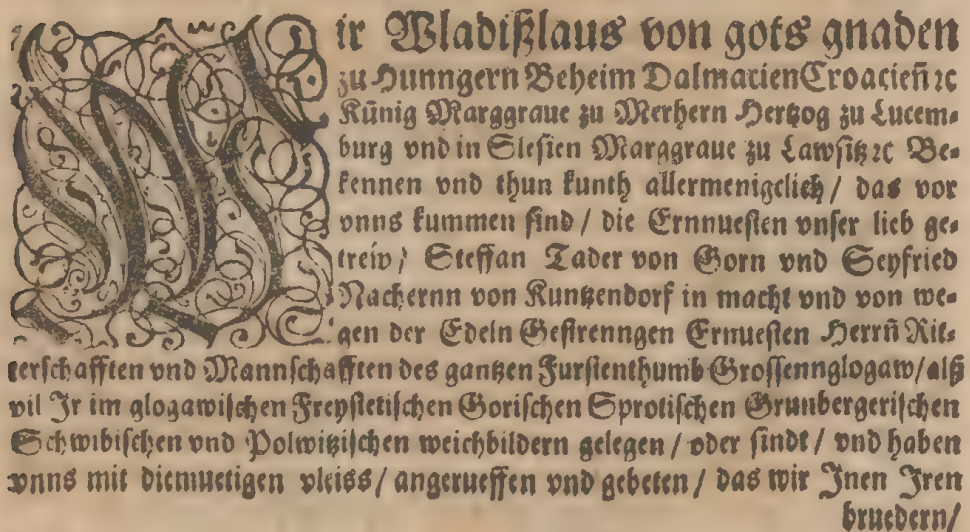 Wir Wladißlaus von gots gnaden
zu Hunngern Beheim Dalmacien Croacień ꝛc
Kűnig Marggraue zu Merhern Hertzog zu Lucem⸗
burg vnd in Slesien Marggraue zu Lawsitz ꝛc Be⸗
kennen vnd thun kunth allermenigclich / das vor
vnns kummen sind / die Ernnuesten vnser lieb ge⸗
treiw / Steffan Tader von Gorn vnd Seyfried
Nachernn von Kuntzendorf in macht vnd von we⸗
gen der Edeln Gestrenngen Ernuesten Herrñ Rit⸗
terschafften vnd Mannschafften des gantzen Furstenthumb Grossennglogaw / alß
vil Jr im glogawischen Freystetischen Gorischen Sprotischen Grunbergerischen
Schwibischen vnd Polwitzischen weichbildern gelegen / oder sindt / vnd haben
vnns mit diemuetigen vleiss / angerueffen vnd gebeten / das wir Jnen Jren
bruedern /